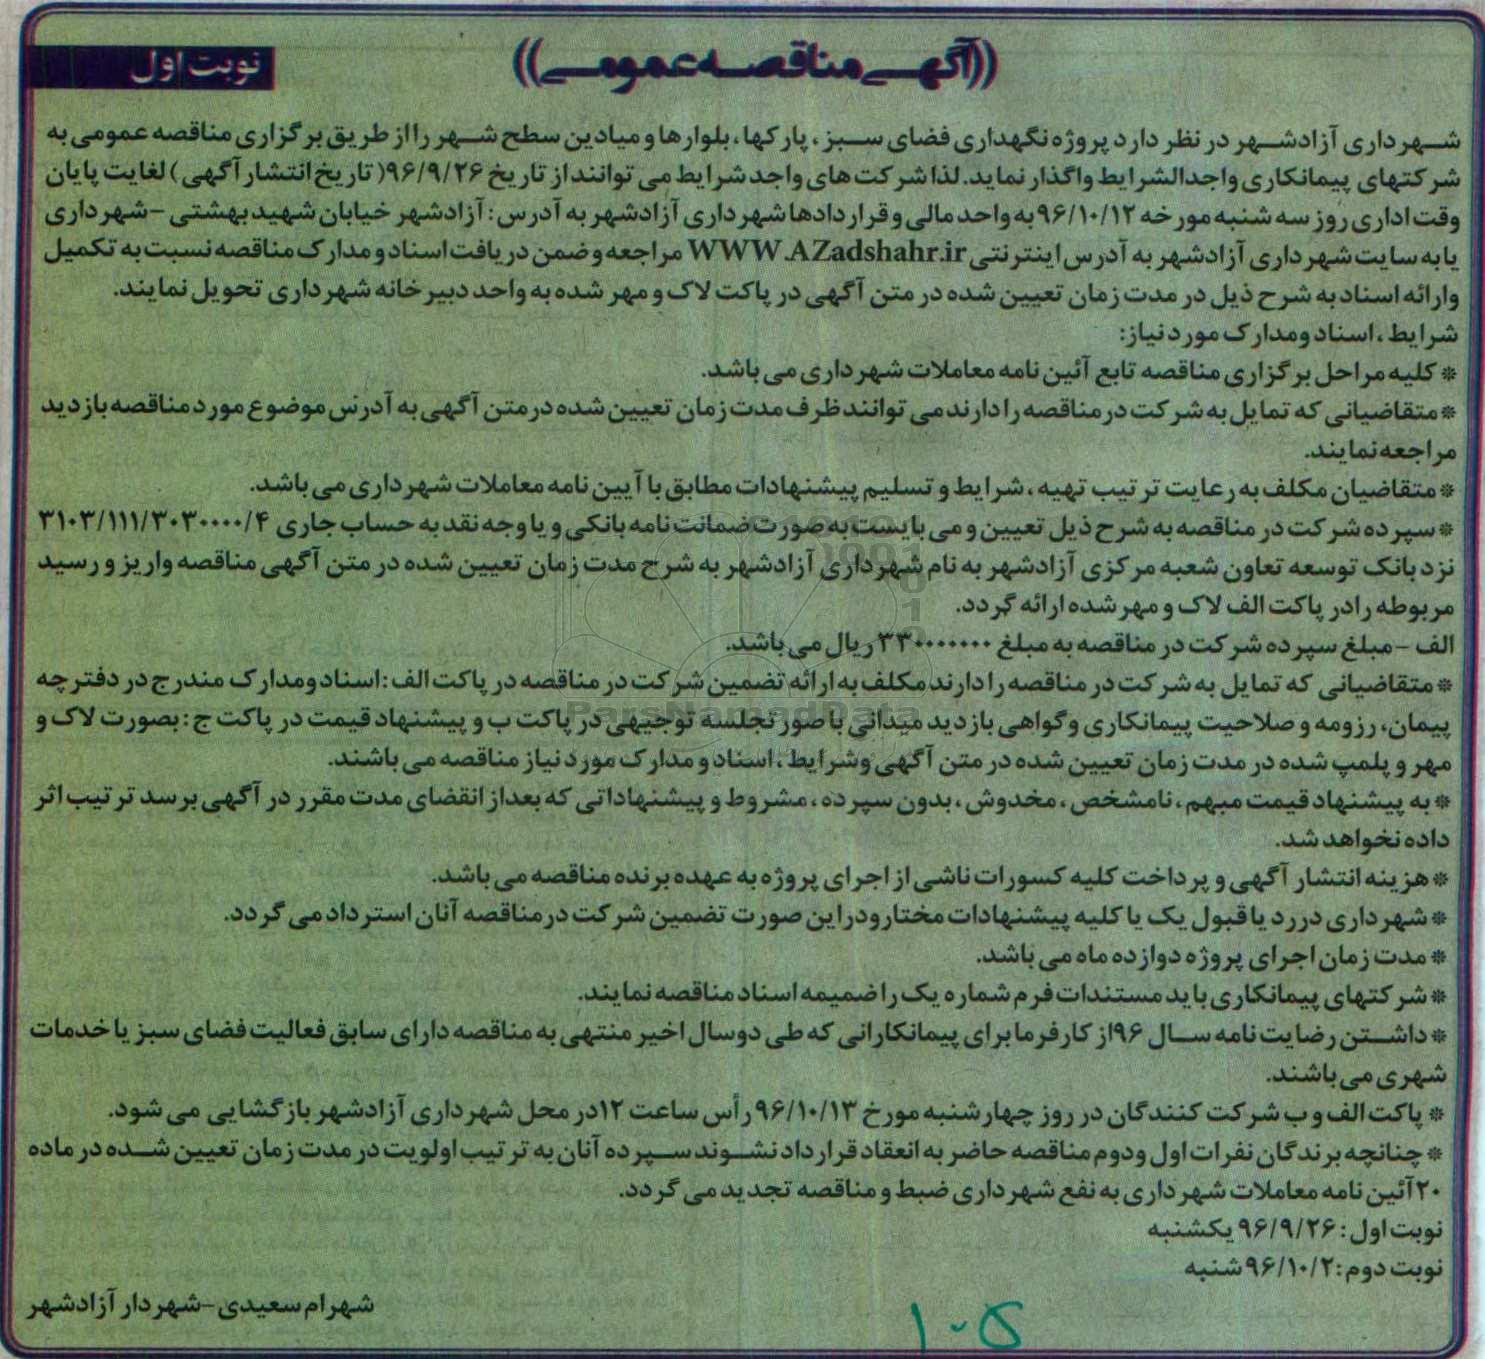 ((آگهی مناقصه عمومی))
نوبت اول
شهرداری آزادشهر در نظر دارد پروژه نگهداری فضای سبز، پارکها، بلوارها و میادین سطح شهر را از طریق برگزاری مناقصه عمومی به
شرکتهای پیمانکاری واجدالشرایط واگذار نماید. لذا شرکت های واجد شرایط می توانند از تاریخ ۹۶/۹/۲۶( تاریخ انتشار آگهی) لغایت پایان
وقت اداری روز سه شنبه مورخه ۹۶/۱۰/۱۲ به واحد مالی و قراردادها شهرداری آزادشهر به آدرس: آزادشهر خیابان شهید بهشتی -شهرداری
یا به سایت شهرداری آزادشهر به آدرس اینترنتی WWW.AZadshahr.ir مراجعه و ضمن دریافت اسناد و مدارک مناقصه نسبت به تکمیل
وارائه اسناد به شرح ذیل در مدت زمان تعیین شده در متن آگهی در پاکت لاک و مهر شده به واحد دبیرخانه شهرداری تحویل نمایند.
شرایط، اسناد ومدارک مورد نیاز:
* کلیه مراحل برگزاری مناقصه تابع آئین نامه معاملات شهرداری می باشد.
* متقاضیانی که تمایل به شرکت درمناقصه را دارند می توانند ظرف مدت زمان تعیین شده درمتن آگهی به آدرس موضوع مورد مناقصه بازدید
مراجعه نمایند.
* متقاضیان مکلف به رعایت ترتیب تهیه، شرایط و تسلیم پیشنهادات مطابق با آیین نامه معاملات شهرداری می باشد.
* سپرده شرکت در مناقصه به شرح ذیل تعیین و می بایست به صورت ضمانت نامه بانکی و یا وجه نقد به حساب جاری ۳۱۰۳/۱۱۱/۳۰۳۰۰۰۰/۴
نزد بانک توسعه تعاون شعبه مرکزی آزادشهر به نام شهرداری آزادشهر به شرح مدت زمان تعیین شده در متن آگهی مناقصه واریز و رسید
مربوطه رادر پاکت الف لاک و مهر شده ارائه گردد.
الف -مبلغ سپرده شرکت در مناقصه به مبلغ ۳۳۰۰۰۰۰۰۰ ریال می باشد.
* متقاضیانی که تمایل به شرکت در مناقصه را دارند مکلف به ارائه تضمین شرکت در مناقصه در پاکت الف: اسناد ومدارک مندرج در دفترچه
پیمان، رزومه و صلاحیت پیمانکاری وگواهی بازدید میدانی با صورتجلسه توجیهی در پاکت ب و پیشنهاد قیمت در پاکت ج: بصورت لاک و
مهر و پلمپ شده در مدت زمان تعیین شده در متن آگهی وشرایط، اسناد و مدارک مورد نیاز مناقصه می باشند.
* به پیشنهاد قیمت مبهم، نامشخص، مخدوش، بدون سپرده، مشروط و پیشنهاداتی که بعداز انقضای مدت مقرر در آگهی برسد ترتیب اثر
داده نخواهد شد.
* هزینه انتشار آگهی و پرداخت کلیه کسورات ناشی از اجرای پروژه به عهده برنده مناقصه می باشد.
* شهرداری دررد یا قبول یک یا کلیه پیشنهادات مختارودراین صورت تضمین شرکت درمناقصه آنان استرداد می گردد.
* مدت زمان اجرای پروژه دوازده ماه می باشد.
* شرکتهای پیمانکاری باید مستندات فرم شماره یک را ضمیمه اسناد مناقصه نمایند.
* داشتن رضایت نامه سال ۹۶از کارفرما برای پیمانکارانی که طی دوسال اخیر منتهی به مناقصه دارای سابق فعالیت فضای سبز یا خدمات
شهری می باشند.
* پاکت الف و ب شرکت کنندگان در روز چهارشنبه مورخ ۹۶/۱۰/۱۳ رأس ساعت ۱۲در محل شهرداری آزادشهر بازگشایی می شود.
* چنانچه برندگان نفرات اول ودوم مناقصه حاضر به انعقاد قرارداد نشوند سپرده آنان به ترتیب اولویت در مدت زمان تعیین شده در ماده
۲۰آئین نامه معاملات شهرداری به نفع شهرداری ضبط و مناقصه تجدید می گردد.
نوبت اول: ۹۶/۹/۲۶ یکشنبه
نوبت دوم: ۹۶/۱۰/۲ شنبه
شهرام سعیدی-شهردار آزادشهر
ParsNamadData